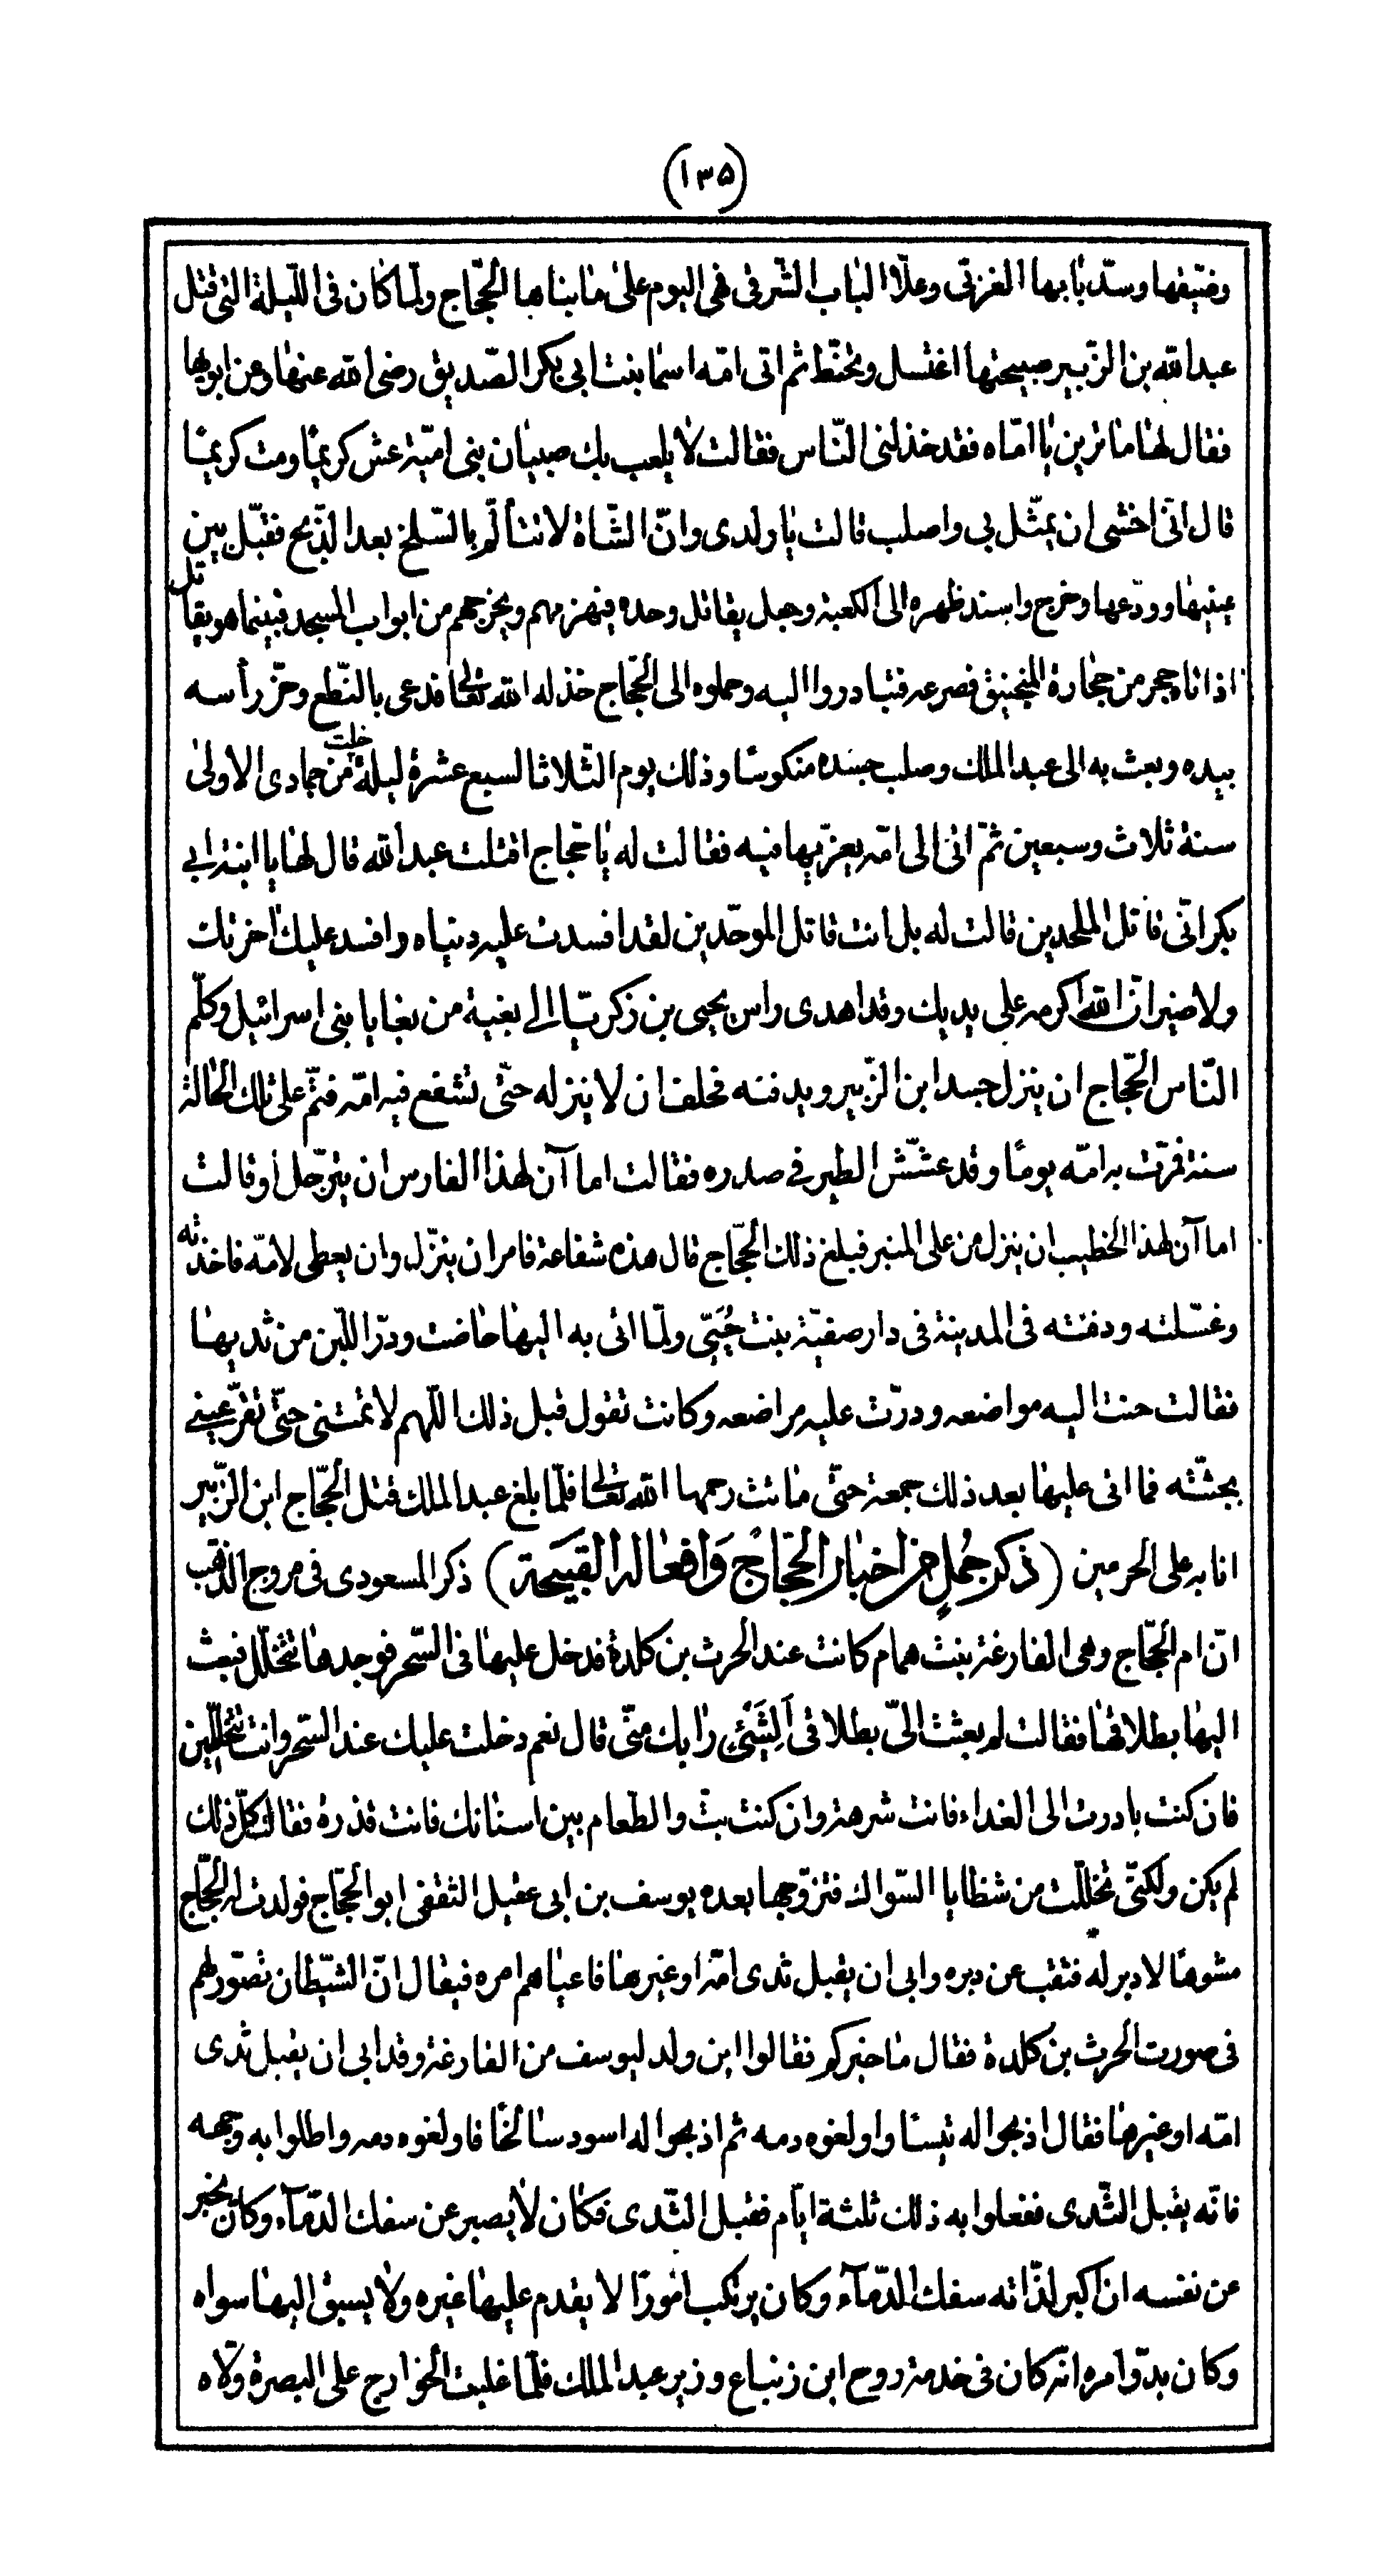 (١٣۵)
وضيّقها وسدّ بابها الغربّى وعلّا الباب الشّرقى فهى اليوم على ما بناها الحجّاج ولمّا كان فى اللّيلة التى قتل
عبدالله بن الزّبير صبيحتها اغتسل وتحنّط ثم اتى امّه اسما بنت ابى بكر الصّديق رضى الله عنها وعن ابويها
فقال لها ما ترين يا امّاه فقد خذلنى النّاس فقالت لا يلعب بك صبيان بنى اميّة عش كريمًا ومت كريمًا
قال انّى اخشى ان يمثّل بى واصلب قالت يا ولدى وانّ الشّاة لا تتألّم بالسّلخ بعد الذّبح فقبّل بين
عينيها وودّعها وخرج واسند ظهره الى الكعبة وجعل يقاتل وحده فيهزمهم ويخرجهم من ابواب المسجد فبينما هو يقاتل
اذ اتاه حجر من حجارة المنجنيق فصرعه فتبادروا اليه وحملوه الى الحجّاج خذله الله تعالى فدعى بالنّطع وحزّ رأسه
بيده وبعث به الى عبد الملك وصلب جسده منكوسًا وذلك يوم الثّلاثا لسبع عشرة ليلة خلت من جمادى الاولى
سنة ثلاث وسبعين ثمّ اتى الى امّه يعزّيها فيه فقالت له يا حجّاج اقتلت عبدالله قال لها يا ابنة ابى
بكر انّى قاتل الملحدين قالت له بل انت قاتل الموحّدين لقد افسدت عليه دنياه وافسد عليك اخرتك
ولا ضير انّ الله اكرمه على يديك وقد اهدى راس يحيى بن زكريّا الى بغية من بغايا بنى اسرائيل وكلّم
النّاس الحجّاج ان ينزل جسد ابن الزّبير ويدفنه فحلف ان لا ينزله حتّى تشفع فيه امّه فتمّ على تلك الحالة
سنة فمرّت به امّه يومًا وقد عشّش الطير فى صدره فقالت اما آن لهذا الفارس ان يترجّل او قالت
اما آن لهذا الخطيب ان ينزل من على المنبر فبلغ ذلك الحجّاج قال هذه شفاعة فامر ان ينزّل وان يعطى لامّه فاخذته
وغسّلته ودفنته فى المدينة فى دار صفيّة بنت حُيَىّ ولمّا اتى به اليها حاضت ودرّ اللّبن من ثديها
فقالت حنت اليه مواضعه ودرّت عليه مراضعه وكانت تقول قبل ذلك اللّهم لا تمتنى حتّى تقرّ عينى
بجثّته فما اتى عليها بعد ذلك جمعة حتّى ماتت رحمها الله تعالى فلمّا بلغ عبد الملك قتل الحجّاج ابن الزّبير
انابه على الحرمين (ذكر جُملٍ من اخبار الحجّاج وَافعاله القبَيحة) ذكر المسعودى فى مروج الذهب
انّ ام الحجّاج وهى الفارغة بنت همام كانت عند الحرث بن كلدة فدخل عليها فى السّحر فوجدها تتخلّل فبعث
اليها بطلاقها فقالت لم بعثت الىّ بطلاقى اَلِشَىْءٍ رابك منّى قال نعم دخلت عليك عند السّحر وانت تتخلّلين
فان كنت بادرت الى الغداء فانت شرهة وان كنت بتّ والطّعام بين اسنانك فانت قذرة فقالت كلّ ذلك
لم يكن ولكنّى تخللّت من شظايا السّواك فتزوّجها بعده يوسف بن ابى عقيل الثقفى ابو الحجّاج فولدت له الحجّاج
مشوهًا لا دبر له فثقب عن دبره وابى ان يقبل ثدى امّه او غيرها فاعياهم امره فيقال انّ الشّيطان تصّور لهم
فى صورت الحرث بن كلدة فقال ما خبركم فقالوا ابن ولد ليوسف من الفارغة وقد ابى ان يقبل ثدى
امّه او غيرها فقال اذبحوا له تيسًا واولغوه دمه ثم اذبحوا له اسود سالخًا فاولغوه دمه واطلوا به وجهه
فانّه يقبل الثّدى ففعلوا به ذلك ثلثة ايّام فقبل الثّدى فكان لا يصبر عن سفك الدّمآء وكان يخبر
عن نفسه انّ اكبر لذّاته سفك الدّمآء وكان يرتكب امورًا لا يقدم عليها غيره ولا يسبق اليها سواه
وكان بدّو امره انّه كان فى خدمة روح ابن زنباع وزير عبد الملك فلمّا غلبت الخوارج على البصرة ولّاه